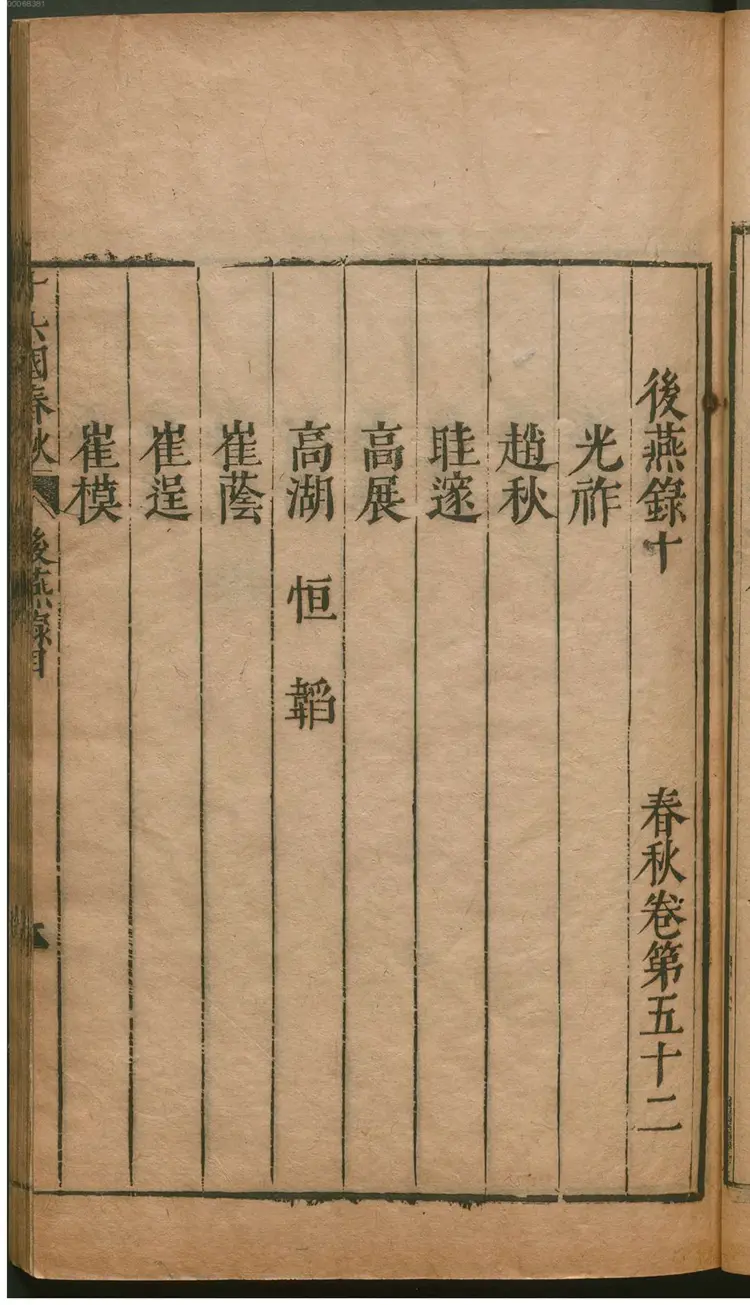 後燕錄十 春秋卷第五十二
光祚
趙秋
眭邃
高展
高湖 恒 韜
崔蔭
崔逞
崔模
十六國春秋 後燕錄目
00066381